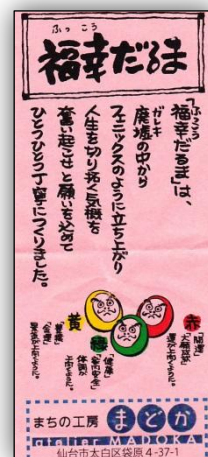 ふっこう
福幸だるま
ふっこう
「福幸だるま」は、
ガレキ
廃墟の中から
フェニックスのように立ち上がり
人生を切り拓く気概を
奮い起こせと願いを込めて
ひとつひとつ丁寧につくりました。
赤
「開運」
「大願成就」
運が上向くように。
緑
「健康」
「家内安全」
体調が
上向くように。
黄
「金運」
まちの工房 まどか
atelier MADOKA
仙台市太白区袋原4-37-1